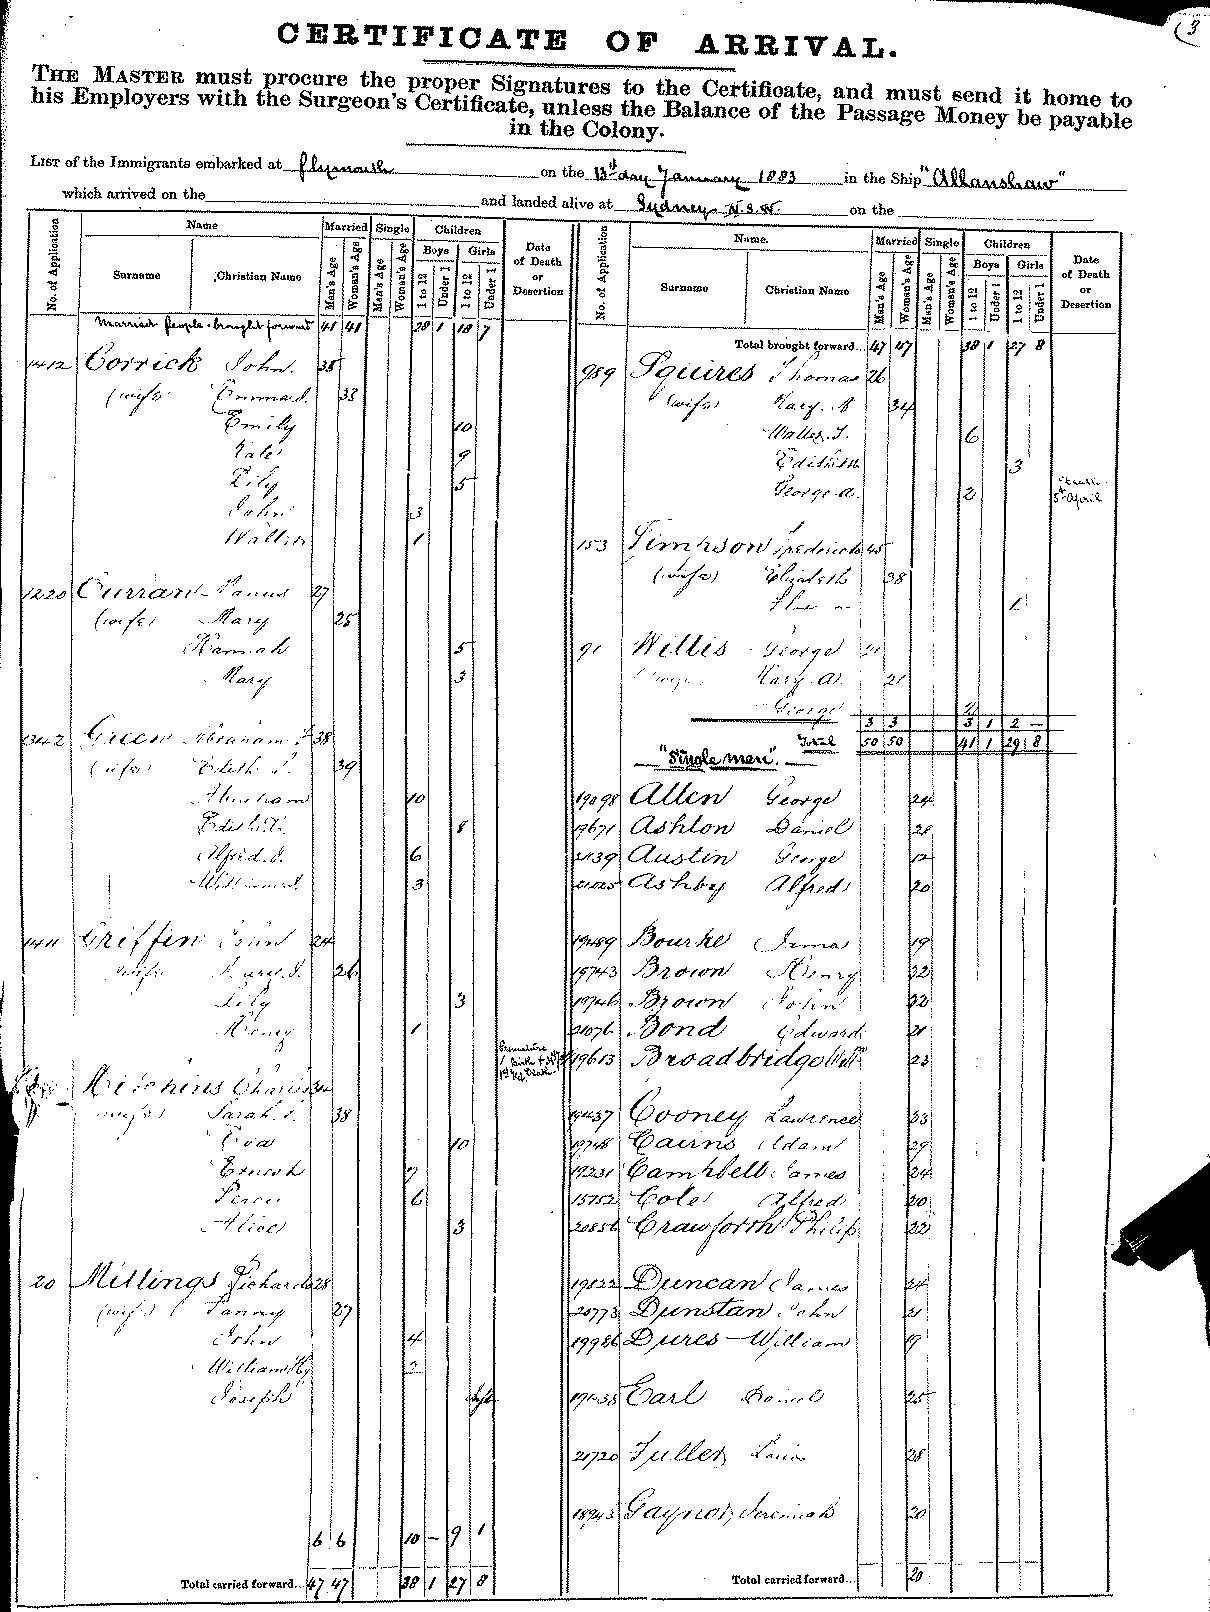 3
CERTIFICATE OF ARRIVAL.
THE MASTER must procure the proper Signatures to the Certificate, and must send it home to
his Employers with the Surgeon's Certificate, unless the Balance of the Passage Money be payable
in the Colony.
LIST of the Immigrants embarked at Plymouth on the 13th day January 1883 in the Ship "Allanshaw"
which arrived on the and landed alive at Sydney N.S.W. on the
No. of Application
Name
Surname
Christian Name
Married
Man's Age
Woman's Age
Single
Man's Age
Woman's Age
Children
Boys
1 to 12
Under 1
Girls
1 to 12
Under 1
Date
of Death
or
Desertion
Married people brought forward 41 41 28 1 18 7
1412 Corrick John 38
(wife) Emma J. 33
Emily 10
Kate 9
Lily 5
John 3
1
1220 Curran 27
(wife) Mary 25
Hannah 5
Mary 3
1342 Green Abraham 38
(wife) Edith 39
Abraham 10
Edith 8
Alfred J. 6
William 3
1411 Griffen 24
(wife) 26
Lily 3
Henry 1
Premature
Birth
Hitchins Charles
(wife) Sarah 38
Eva 10
Ernest 7
Percy 6
Alice 3
20 Millings Richard 28
(wife) Fanny 27
John 4
William Hy 2
Joseph Inft
6 6 10 - 9 1
Total carried forward... 47 47 38 1 27 8
No. of Application
Name.
Surname
Christian Name
Married
Man's Age
Woman's Age
Single
Man's Age
Woman's Age
Children
Boys
1 to 12
Under 1
Girls
1 to 12
Under 1
Date
of Death
or
Desertion
Total brought forward... 47 47 38 1 27 8
989 Squires Thomas 26
(wife) Mary A 34
Walter J. 6
Edith 3
George A. 2 Death
5th April
153 Simpson Frederick 45
(wife) Elizabeth 38
1
91 Willis George 21
(wife) Mary A. 21
George 2
3 3 3 1 2 -
Total 50 50 41 1 29 8
"Single men".
19098 Allen George 24
19671 Ashton Daniel 21
21139 Austin George 12
21025 Ashby Alfred 20
19489 Bourke 19
15743 Brown Henry 22
19746 Brown John 22
21076 Bond Edward 21
19613 Broadbridge Wm 23
19437 Cooney Lawrence 33
19748 Cairns Adam 29
19231 Campbell James 24
15752 Cole Alfred 20
20856 Crawforth Philip 22
19022 Duncan James 24
20773 Dunstan John 21
19986 Dures William 19
19438 Earl Daniel 25
21720 Fuller Louis 28
18943 Gaynor Jeremiah 20
Total carried forward... 20